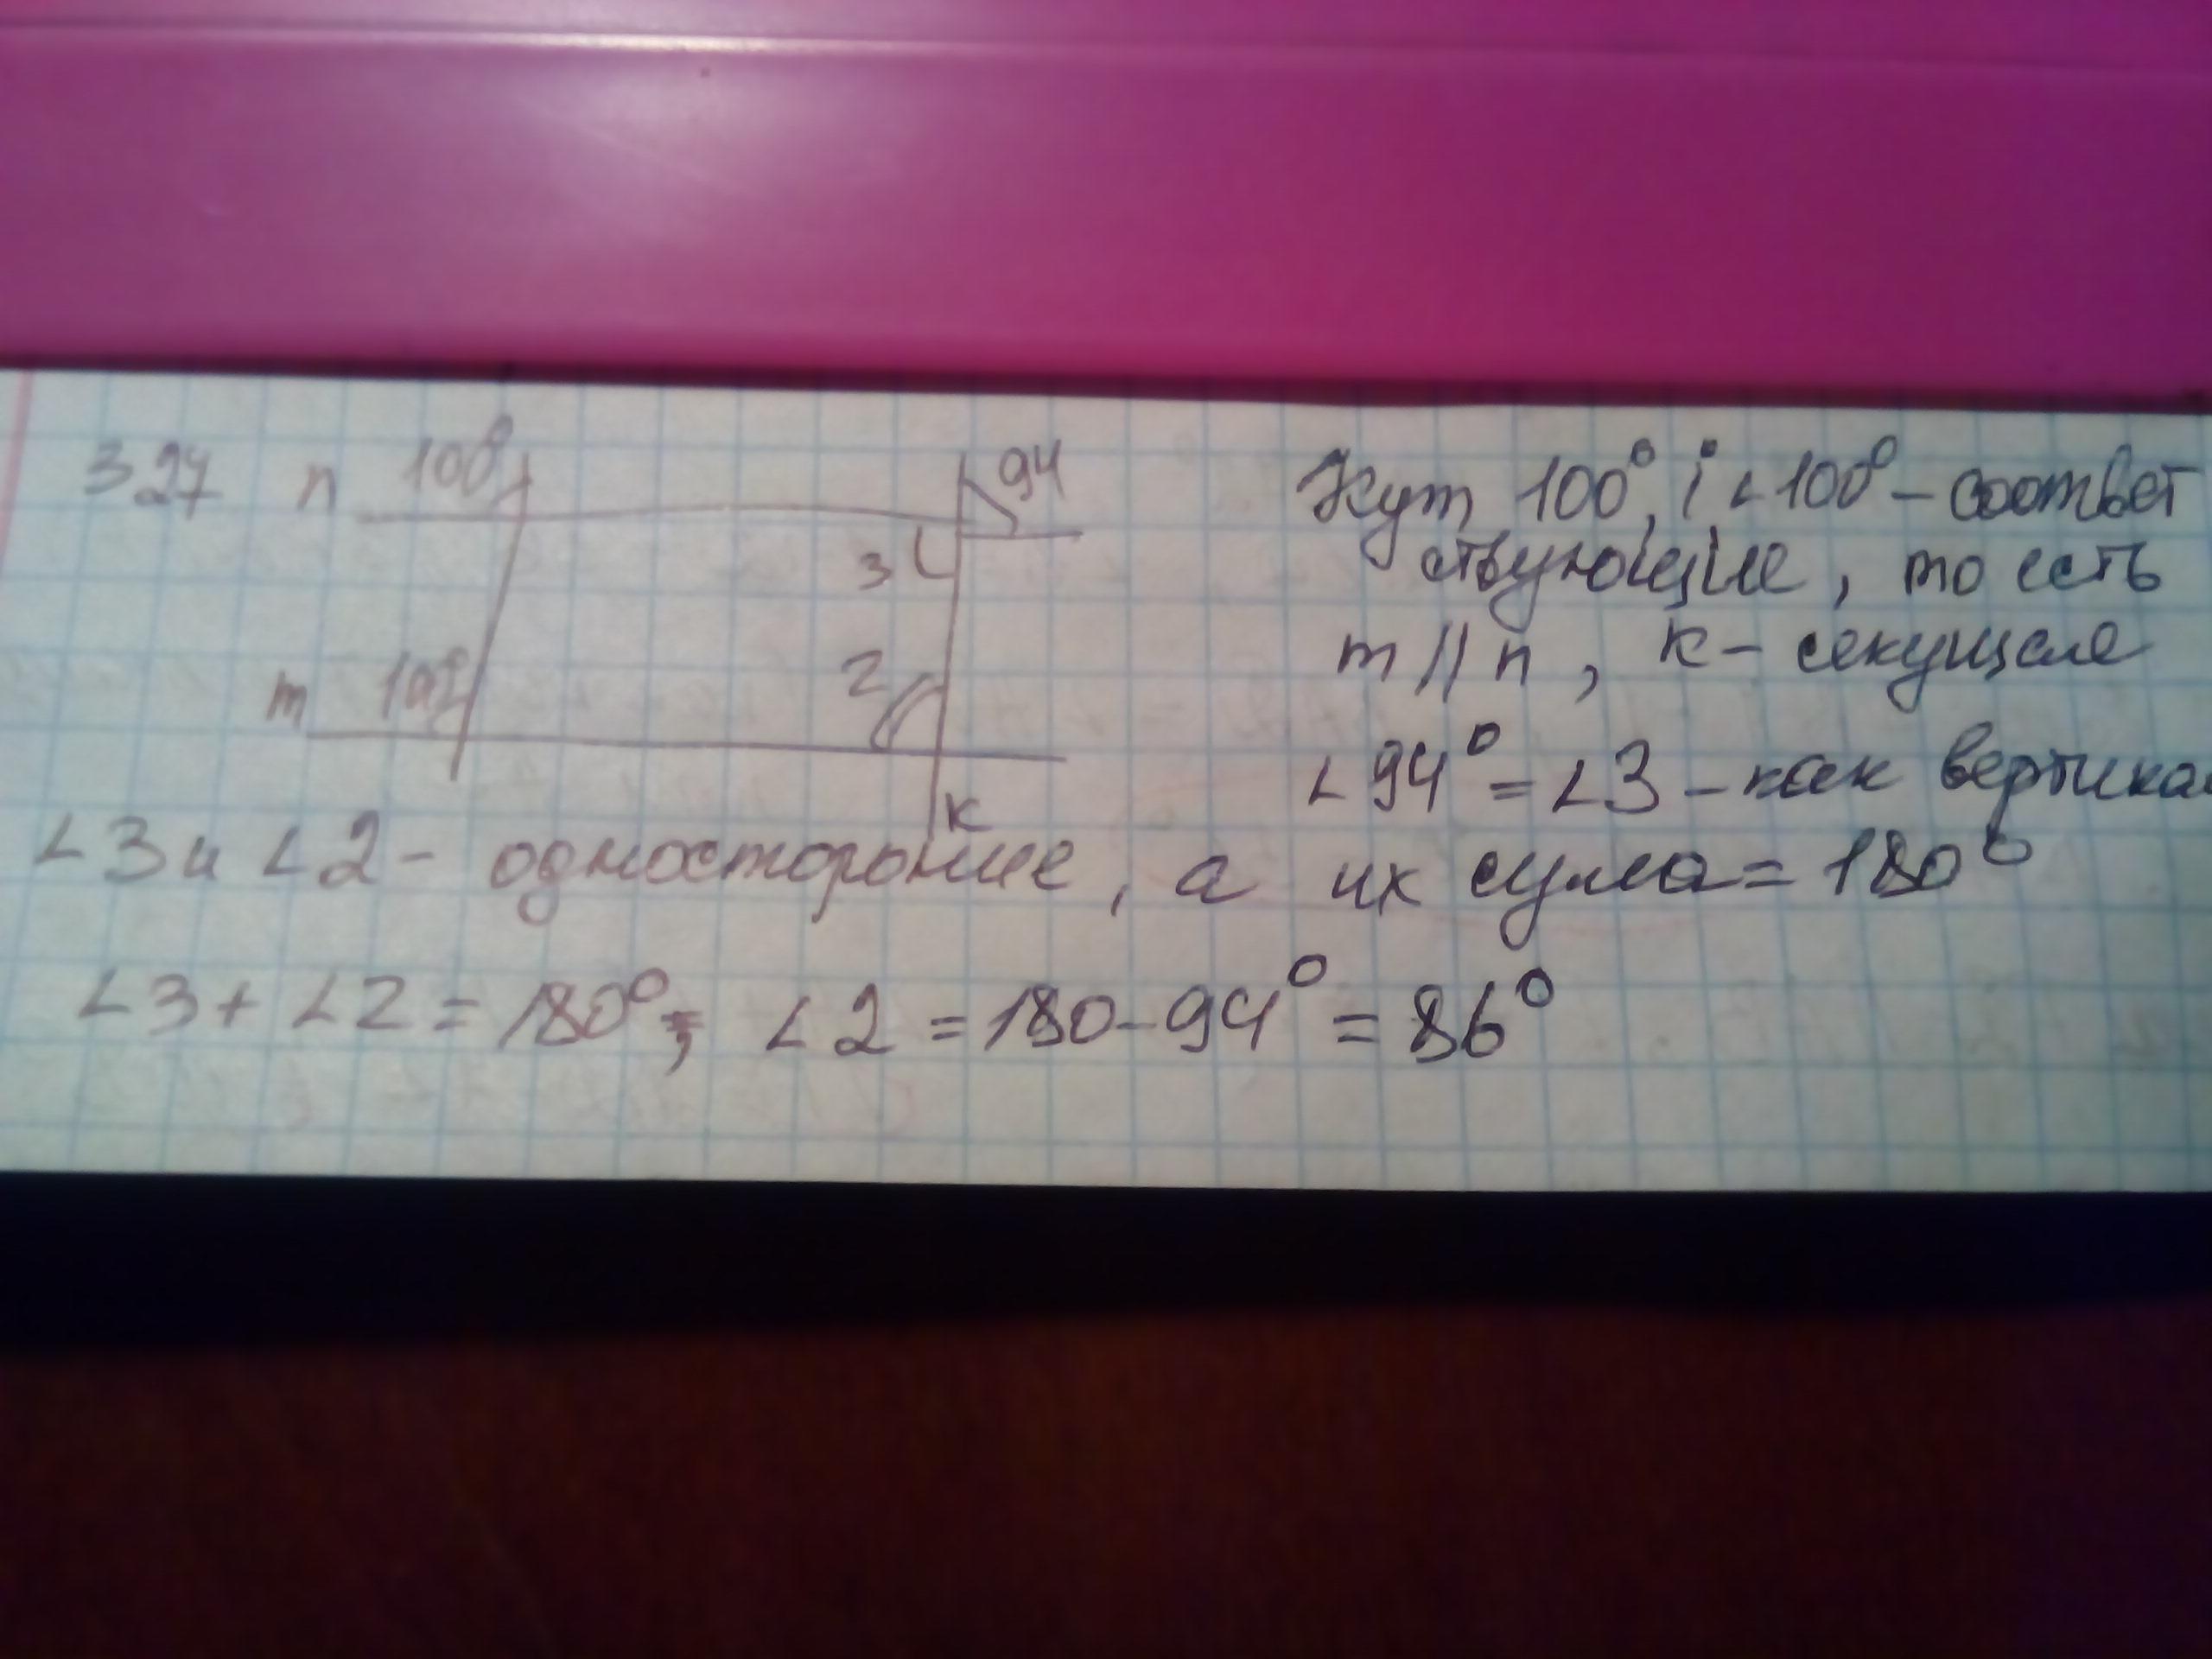 327 n 100° 94
3
2
m 100°
k
Кут 100°, і ∠100° – соответ
ствующие, то есть
m || n, k – секущая
∠94° = ∠3 – как вертика
∠3 и ∠2 – односторонние, а их сума = 180°
∠3 + ∠2 = 180°; ∠2 = 180 – 94° = 86°